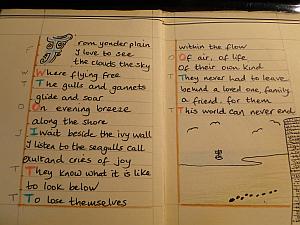 From yonder plain
I love to see
the clouds the sky
Where flying free
The gulls and gannets
glide and soar
On evening breeze
along the shore
I wait beside the ivy wall
I listen to the seagulls call
exultant cries of joy
They know what it is like
to look below
To lose themselves
within the flow
Of air, of life
Of their own kind
They never had to leave
behind a loved one, family
a friend. for them
This world can never end.